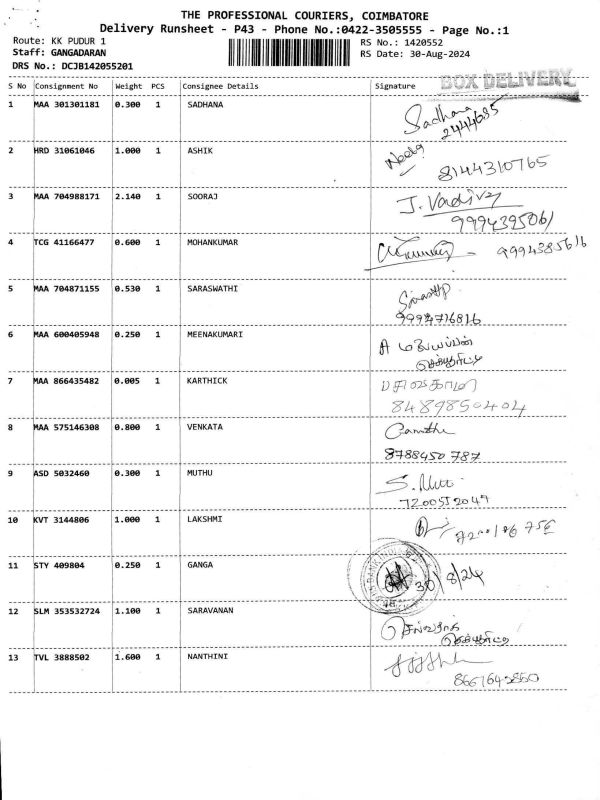 THE PROFESSIONAL COURIERS, COIMBATORE
Delivery Runsheet - P43 - Phone No.:0422-3505555 - Page No.:1
Route: KK PUDUR 1
Staff: GANGADARAN
DRS No.: DCJB142055201
RS No.: 1420552
RS Date: 30-Aug-2024
BOX DELIVERY
S No Consignment No Weight PCS Consignee Details Signature
1 MAA 301301181 0.300 1 SADHANA Sadhana
2444635
2 HRD 31061046 1.000 1 ASHIK
8144310765
3 MAA 704988171 2.140 1 SOORAJ J. Vadive
9994395061
4 TCG 41166477 0.600 1 MOHANKUMAR 9994385616
5 MAA 704871155 0.530 1 SARASWATHI
9994716816
6 MAA 600405948 0.250 1 MEENAKUMARI
7 MAA 866435482 0.005 1 KARTHICK
8489850404
8 MAA 575146308 0.800 1 VENKATA
8788450 787
9 ASD 5032460 0.300 1 MUTHU
7200552049
10 KVT 3144806 1.000 1 LAKSHMI
11 STY 409804 0.250 1 GANGA 30/8/24
12 SLM 353532724 1.100 1 SARAVANAN
13 TVL 3888502 1.600 1 NANTHINI
8667642850